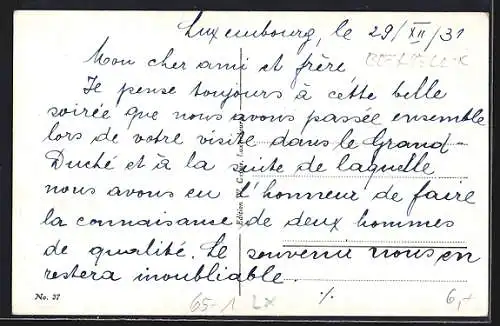 Luxembourg, le 29/XII/31
Mon cher ami et frère
Je pense toujours à cette belle
soirée que nous avons passée ensemble
lors de votre visite dans le Grand-
Duché et à la suite de laquelle
nous avons eu l'honneur de faire
la connaissance de deux hommes
de qualité. Le souvenir nous en
restera inoubliable.
No. 37
65-1 LX
%
6,-